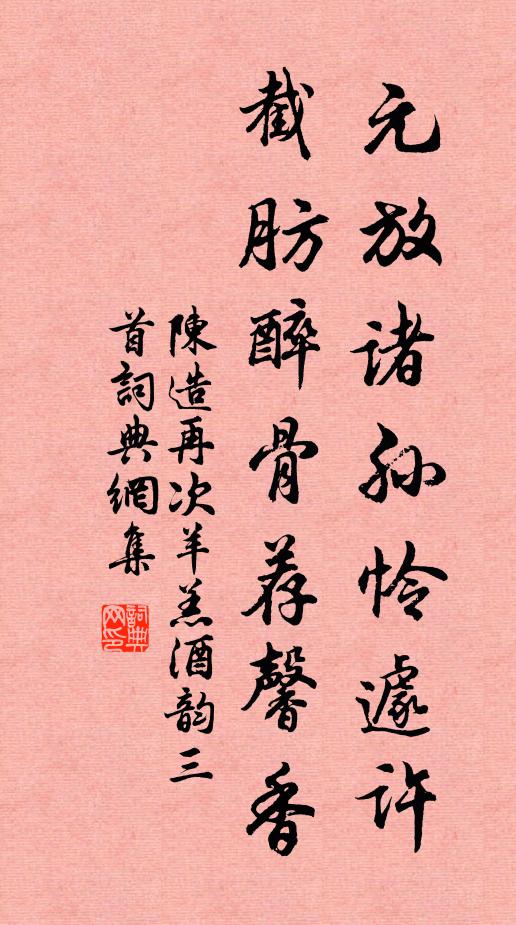 元放诸孙怜遽许
截肪醉骨荐馨香
陳造再次羊羔酒韵三
首詞典網集
詞典網印